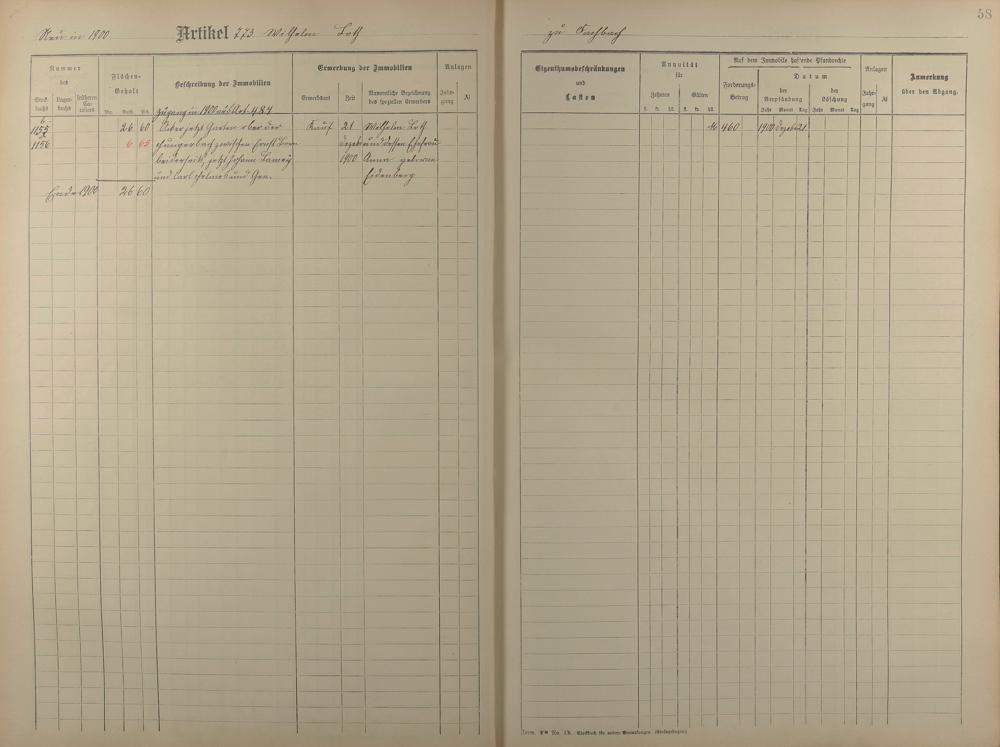 58
Neu in 1900
Artikel 773 Wilhelm Loth
zu Fachbach
Nummer
des
Stock-
buchs
Lager-
buchs
früheren
Ca-
tasters
Flächen-
Gehalt
Mg. Rth. Sch.
Beschreibung der Immobilien
Erwerbung der Immobilien
Erwerbsart
Zeit
Namentliche Bezeichnung
des speziellen Erwerbers
Anlagen
Jahr-
gang
№
Zugang in 1900 aus Art. 484
6.
1155
1156
26 60
6 65
Acker jetzt Garten ober der
zwischen Ernst Born
beiderseits, jetzt Johann Lamey
und Carl und Gen.
Kauf
21
Dezebr
1900
Wilhelm Loth
und dessen Ehefrau
Anna geborne
Eidenberg
Ende 1900
26 60
Eigenthumsbeschränkungen
und
Lasten
Annuität
für
Zehnten
Gülten
fl. kr. hl.
fl. kr. hl.
Auf dem Immobile haftende Pfandrechte
Forderungs-
Betrag
Datum
der
Verpfändung
Jahr Monat Tag
der
Löschung
Jahr Monat Tag
Anlagen
Jahr-
gang
№
Anmerkung
über den Abgang.
M 460
1900 Dezebr 21